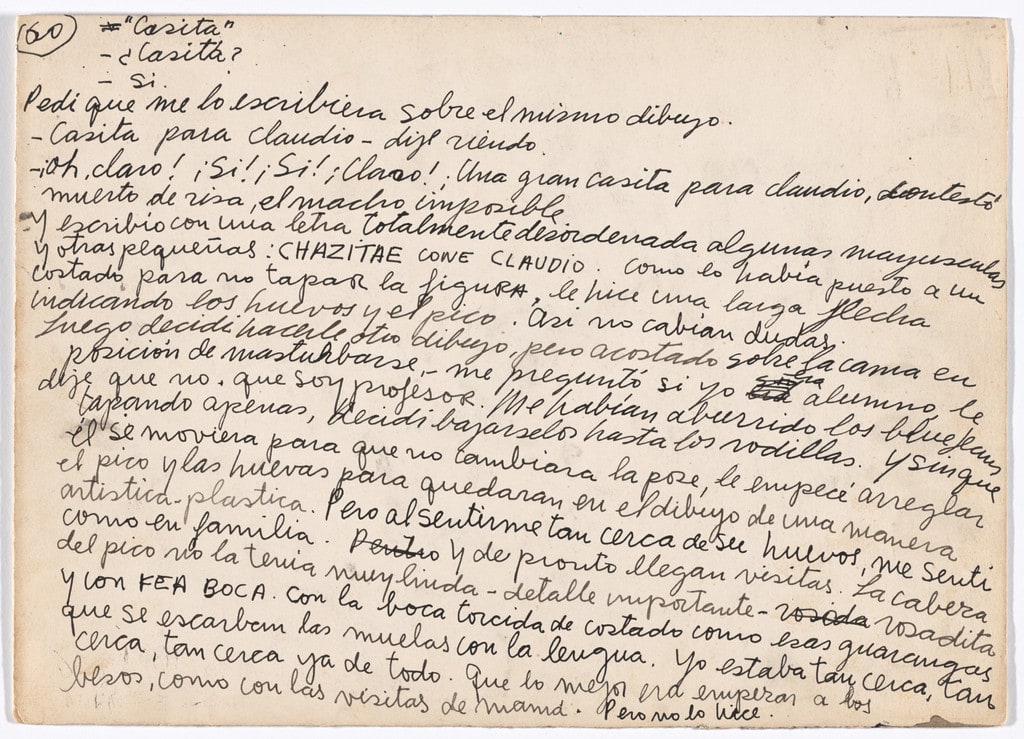 60
"Casita"
- ¿Casita?
- Si.
Pedi que me lo escribiera sobre el mismo dibujo.
- Casita para claudio - dije riendo.
- ¡Oh, claro! ¡Si! ¡Si! ¡Claro! ¡Una gran casita para claudio, contestó
muerto de risa, el macho imposible.
Y escribio con una letra totalmente desordenada algunas mayusculas
y otras pequeñas: CHAZITAE CONE CLAUDIO. Como lo había puesto a un
costado para no tapar la figura, le hice una larga flecha
indicando los huevos y el pico. Asi no cabian dudas.
Luego decidi hacerle otro dibujo, pero acostado sobre la cama en
posición de masturbarse, - me preguntó si yo era alumno, le
dije que no. que soy profesor. Me habían aburrido los bluejeans
tapando apenas, decidi bajarselos hasta las rodillas. Y sin que
él se moviera para que no cambiara la pose, le empecé arreglar
el pico y las huevas para quedaran en el dibujo de una manera
artistica-plastica. Pero al sentirme tan cerca de su huevos, me senti
como en familia. Pentro Y de pronto llegan visitas. La cabeza
del pico no la tenia muy linda - detalle importante - rosada rosadita
y con FEA BOCA. con la boca torcida de costado como esas guarangas
que se escarban las muelas con la lengua. Yo estaba tan cerca, tan
cerca, tan cerca ya de todo. Que lo mejor era empezar a los
besos, como con las visitas de mamá. Pero no lo hice.